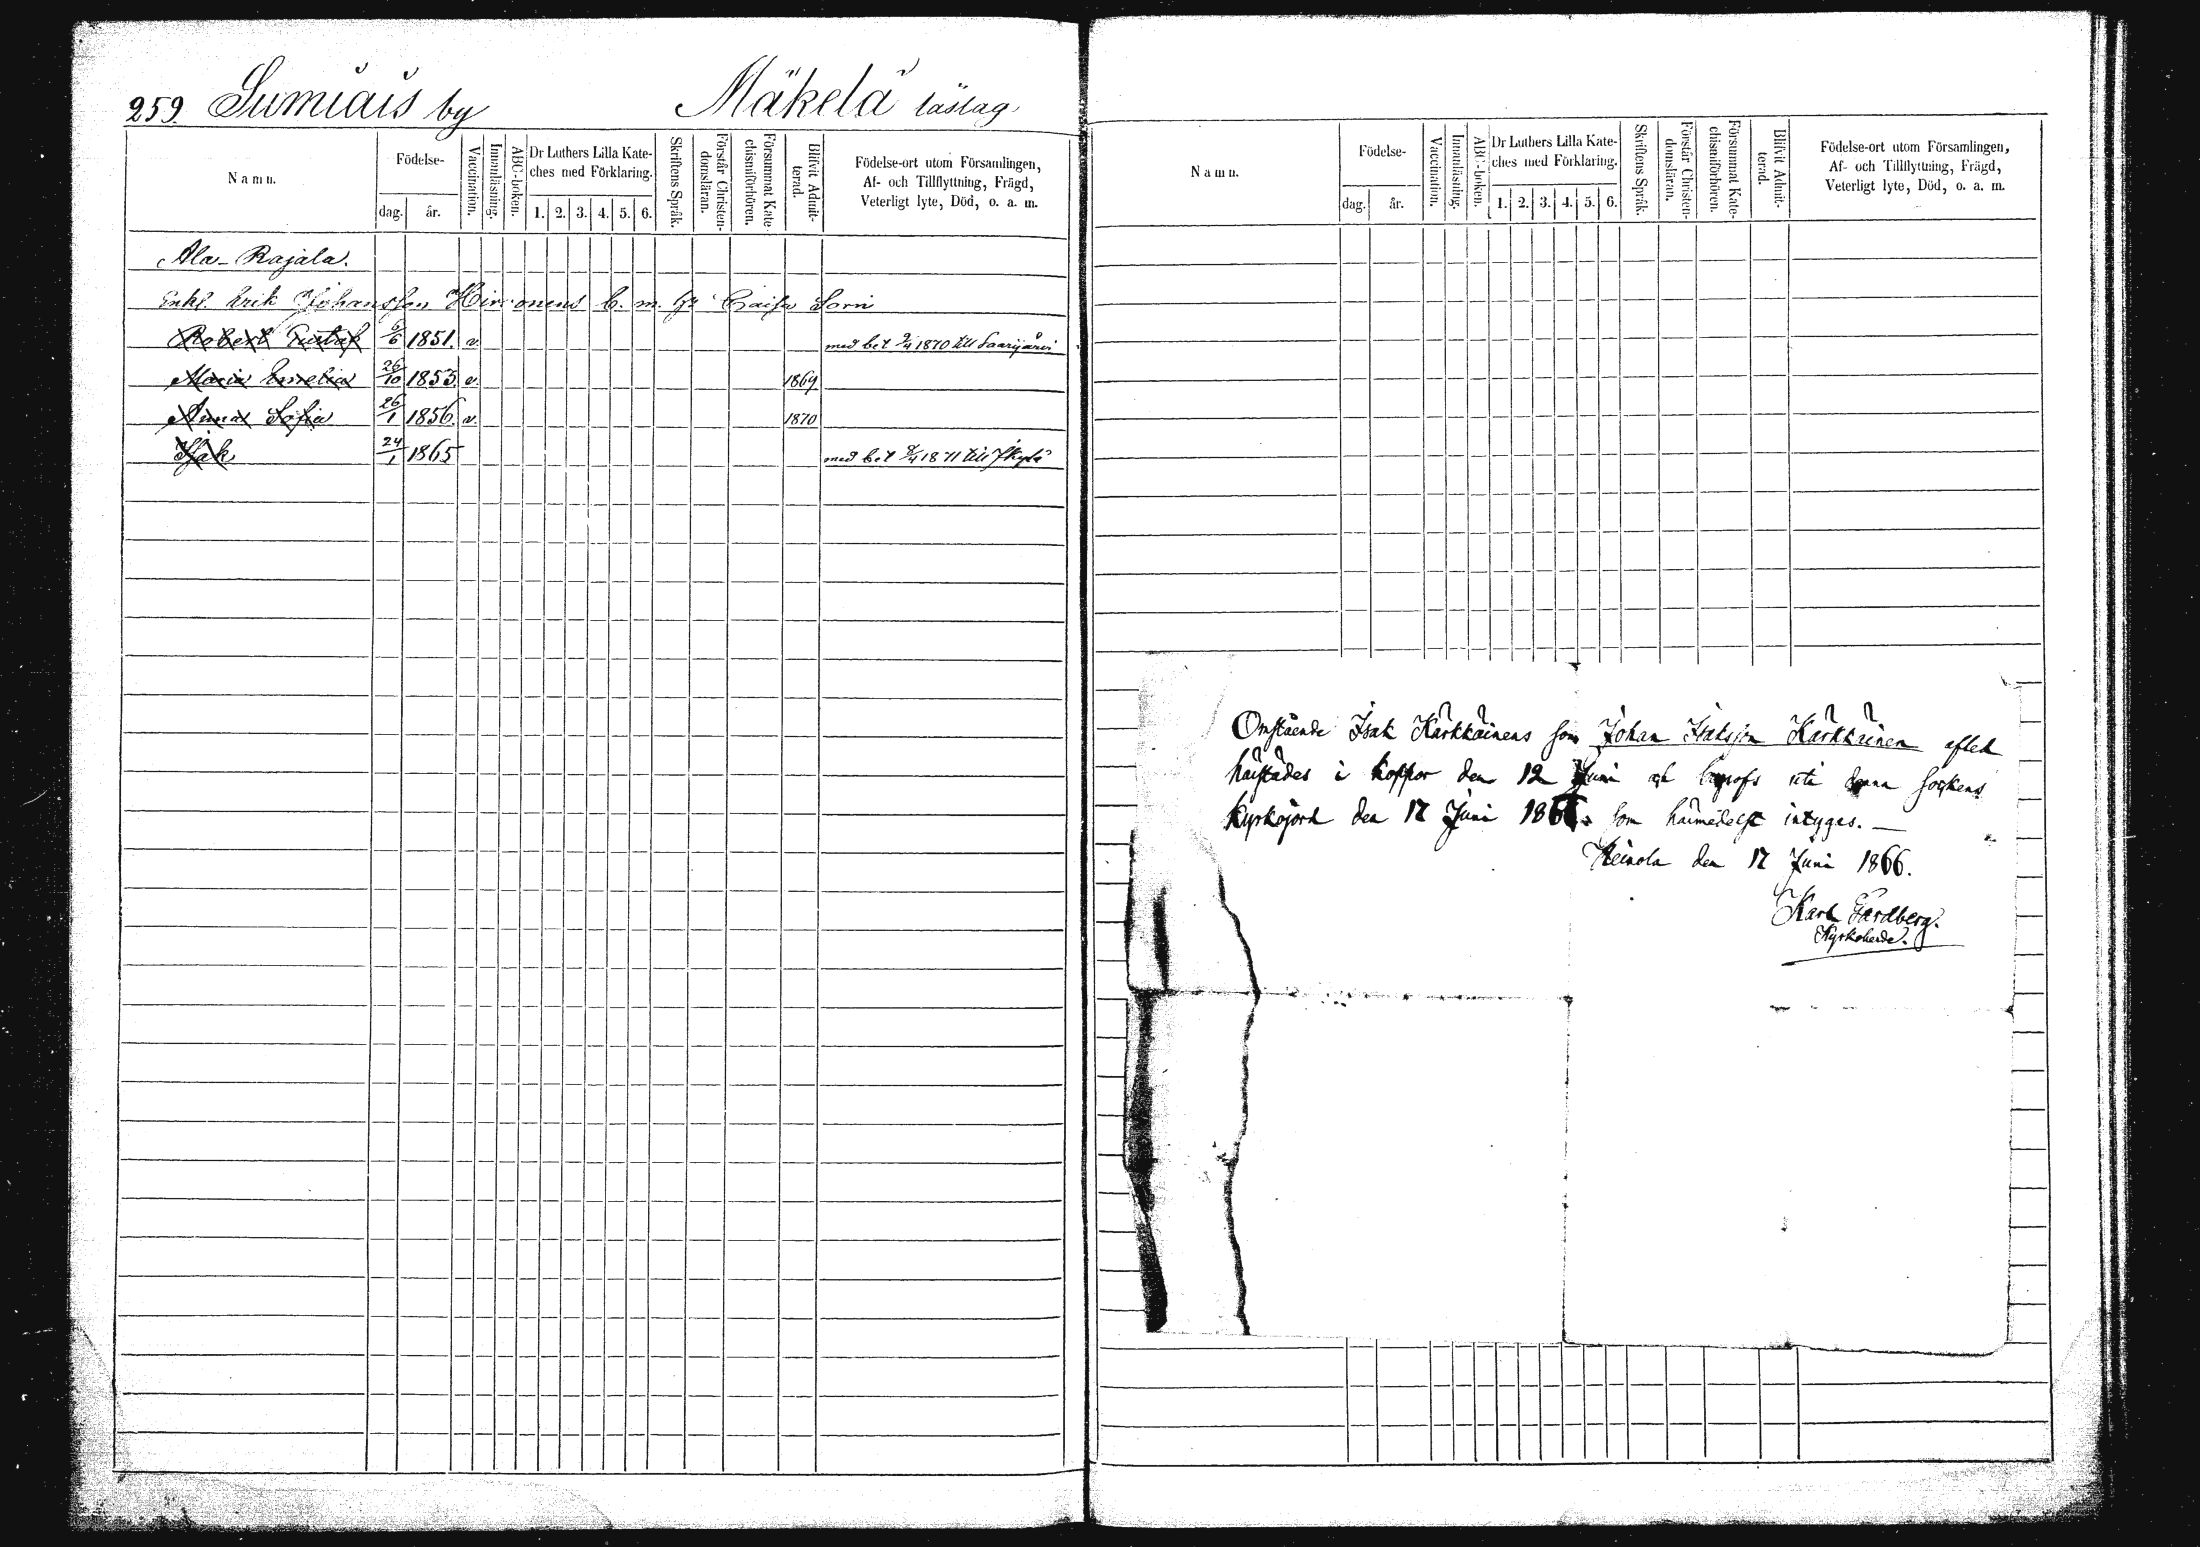 259. Sumiais by Mäkelä läslag
Namn.
Födelse-
dag. år.
Vaccination.
Innanläsning.
ABC-boken.
Dr Luthers Lilla Kate-
ches med Förklaring.
1. 2. 3. 4. 5. 6.
Skriftens Språk.
Förstår Christen-
domsläran.
Försummat Kate-
chismiförhören.
Blifvit Admit-
terad.
Födelse-ort utom Församlingen,
Af- och Tillflyttning, Frägd,
Veterligt lyte, Död, o. a. m.
Ala-Rajala.
Enkl. Erik Johansson Hirvonens b. m. Caisa
Robert Gustaf 6/6 1851. v. med bet 9/4 1870 till Saarijärvi
Maria Emelia 26/10 1853. v. 1869
Anna Sofia 26/1 1856. v. 1870
Isak 24/1 1865 med bet 1871 till Jkylä
Namn.
Födelse-
dag. år.
Vaccination.
Innanläsning.
ABC-boken.
Dr Luthers Lilla Kate-
ches med Förklaring.
1. 2. 3. 4. 5. 6.
Skriftens Språk.
Förstår Christen-
domsläran.
Försummat Kate-
chismiförhören.
Blifvit Admit-
terad.
Födelse-ort utom Församlingen,
Af- och Tillflyttning, Frägd,
Veterligt lyte, Död, o. a. m.
Omstående Isak Kärkkäinens son Johan Isaksson Kärkkäinen afled
härstädes i koppor den 12 Juni och begrofs uti denna sockens
kyrkojord den 17 Juni 1866. Som härmedelst intygas. —
Heinola den 17 Juni 1866.
Karl Gardberg.
Kyrkoherde.